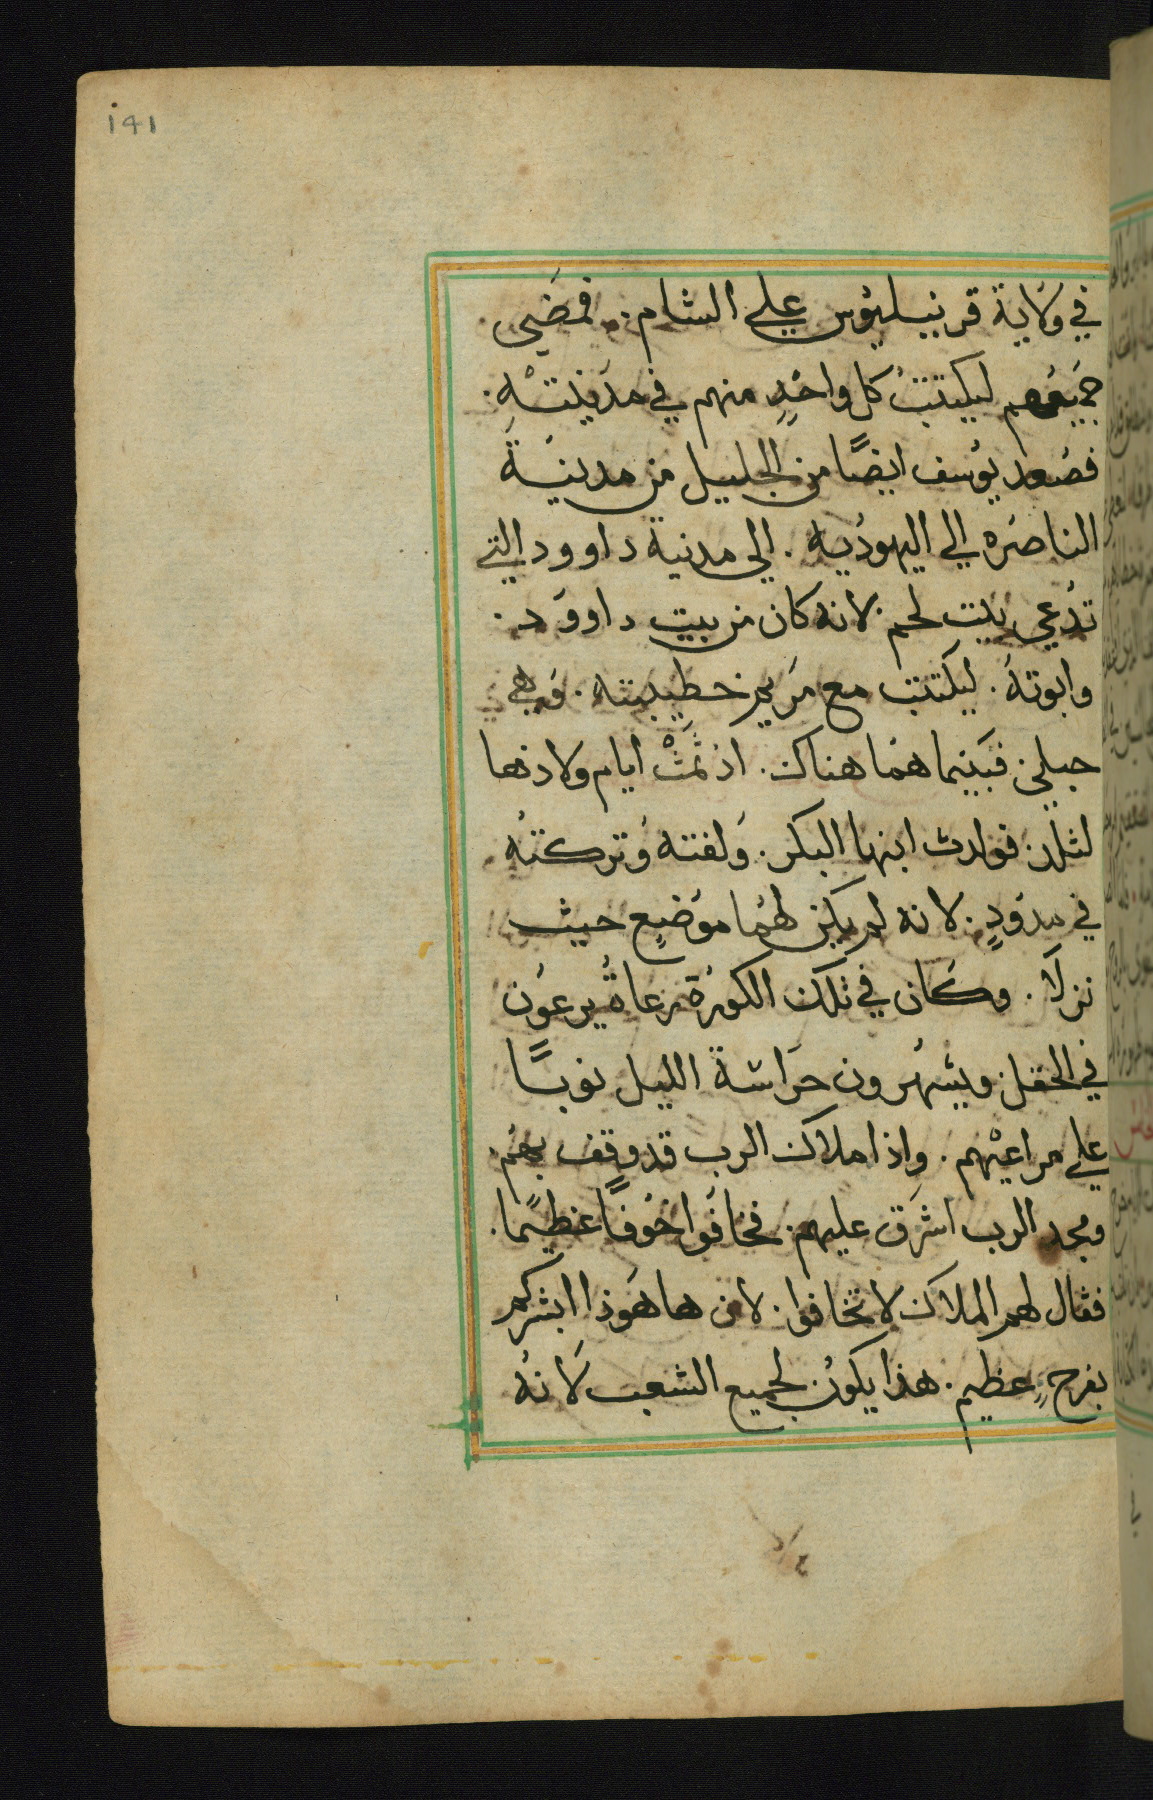 ١٩١
في ولاية قرينيليوس علي الشام. فمضي
جميعهم ليكتتب كل واحدٍ منهم في مدينته.
فصعد يوسف ايضًا من الجليل من مدينة
الناصره الي اليهوديه. الي مدنية داوود التي
تدعي بيت لحم. لانه كان من بيت داوود.
وابوته. ليكتتب مع مريم خطيبته. وهي
حبلي. فبينما هما هناك. اذ تمت ايام ولادتها
لتلد. فولدت ابنها البكر. ولفته وتركته
في مدودٍ. لانه لم يكن لهما موضع حيث
نزلا. وكان في تلك الكورة رعاةٌ يرعون
في الحقل. ويسهرون حراسة الليل نوبًا
علي مراعيهم. واذا ملاك الرب قد وقف بهم.
ومجد الرب اشرق عليهم. فخافوا خوفًا عظيمًا.
فقال لهم الملاك لا تخافوا. لان هاهوذا ابشركم
بفرحٍ عظيم. هذا يكون لجميع الشعب لانه